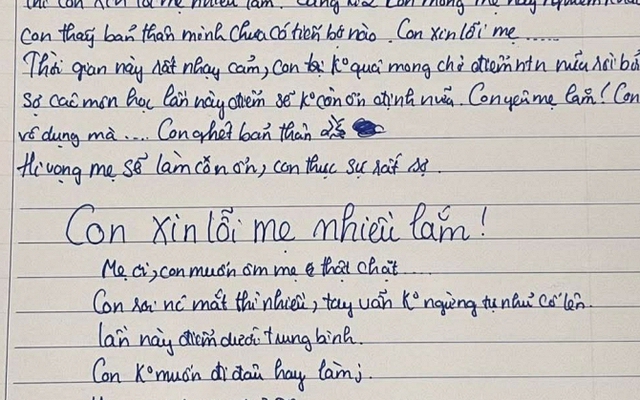 thì con xin lỗi mẹ nhiều lắm. Cũng
con thấy bản thân mình chưa có tiến bộ nào. Con xin lỗi mẹ .....
Thời gian này rất nhạy cảm, con k° quá mong chờ điểm ntn nữa rồi
Sợ các môn học lần này điểm sẽ k° còn ổn định nữa. Con yêu mẹ lắm! Con
vô dụng mà .... Con ghét bản thân
Hi vọng mẹ sẽ làm còn ổn, con thực sự rất sợ.
Con xin lỗi mẹ nhiều lắm!
Mẹ ơi, con muốn ôm mẹ thật chặt ....
Con rơi nc mắt thì nhiều, tay vẫn k° ngừng tự nhủ cố lên.
lần này điểm dưới trung bình.
Con k° muốn đi đâu hay làm j.